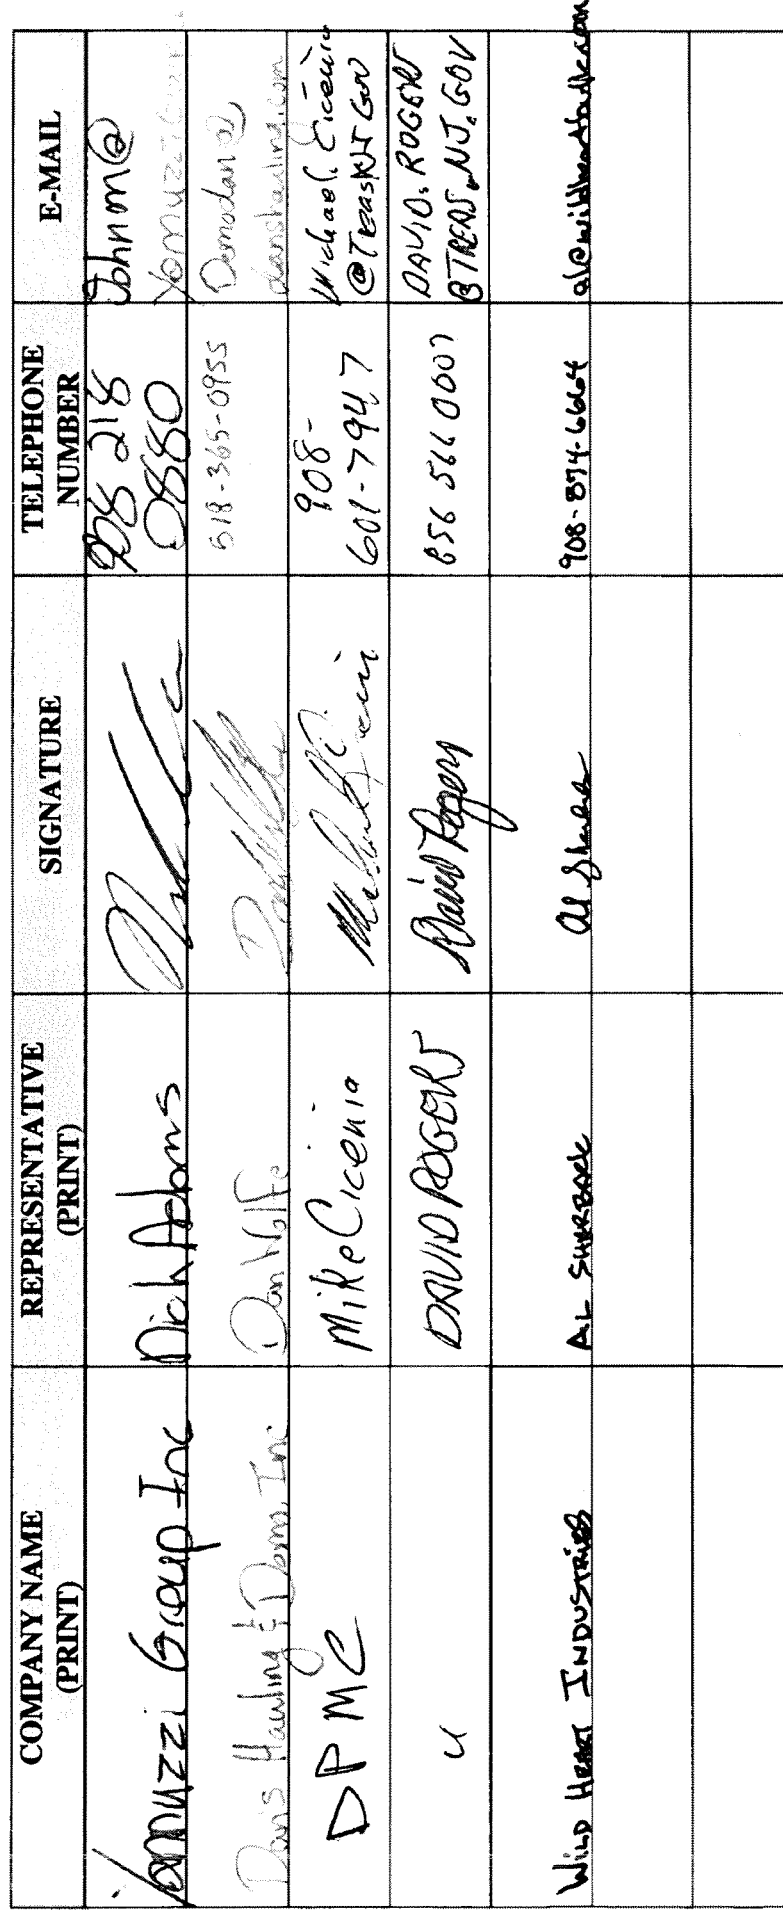 COMPANY NAME
(PRINT)
REPRESENTATIVE
(PRINT)
SIGNATURE
TELEPHONE
NUMBER
E-MAIL
Yannuzzi Group Inc
Dick Adams
908 218
0880
Johnm@
Dan's Hauling & Demo, Inc
Dan Wolfe
518-365-0955
Demodan@
danshauling.com
DPMC
Mike Cicenia
908-
601-7947
Michael. Cicenia
@Treas NJ Gov
"
DAVID ROGERS
David Rogers
856 566 0007
DAVID.ROGERS
@TREAS.NJ.GOV
WILD HEART INDUSTRIES
AL
908-874-6664